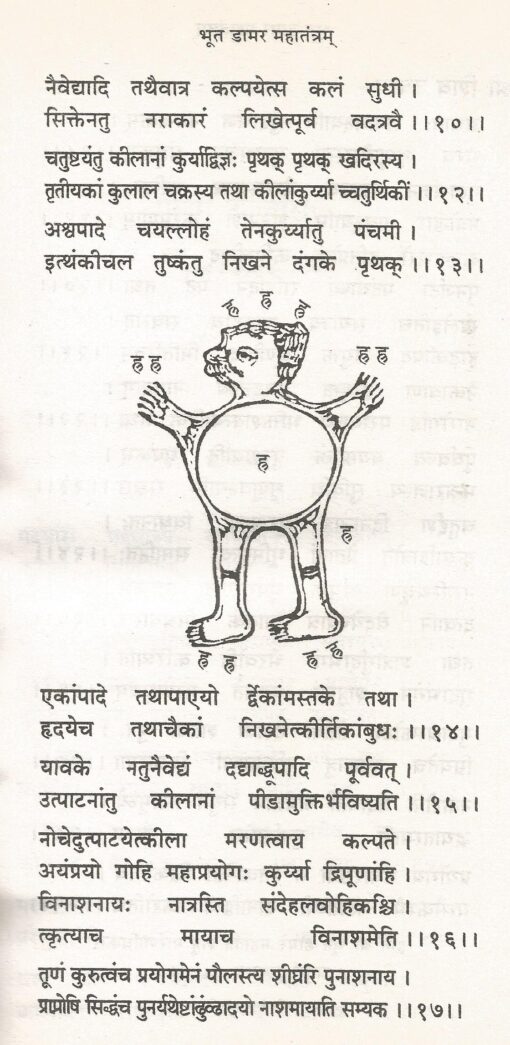 भूत डामर महातंत्रम्
नैवेद्यादि तथैवात्र कल्पयेत्स कलं सुधी ।
सिक्तेनतु नराकारं लिखेत्पूर्व वदत्रवै ।।१०।।
चतुष्टयंतु कीलानां कुर्याद्विज्ञः पृथक् पृथक् खदिरस्य ।
तृतीयकां कुलाल चक्रस्य तथा कीलांकुर्य्या च्चतुर्थिकीं ।।१२।।
अश्वपादे चयल्लोहं तेनकुर्य्यातु पंचमी ।
इत्थंकीचल तुष्कंतु निखने दंगके पृथक् ।।१३।।
ह्र ह्र ह्र
ह्र ह्र ह्र ह्र
ह्र
ह्र
ह्र ह्र ह्र ह्र
एकांपादे तथापाएयो र्द्वेकांमस्तके तथा ।
हृदयेच तथाचैकां निखनेत्कीर्तिकांबुधः ।।१४।।
यावके नतुनैवेद्यं दद्याद्धूपादि पूर्ववत् ।
उत्पाटनांतु कीलानां पीडामुक्तिर्भविष्यति ।।१५।।
नोचेदुत्पाटयेत्कीला मरणत्वाय कल्पते
अयंप्रयो गोहि महाप्रयोगः कुर्य्या द्रिपूणांहि
विनाशनायः नात्रस्ति संदेहलवोहिकश्चि
त्कृत्याच मायाच विनाशमेति ।।१६।।
तूणं कुरुत्वंच प्रयोगमेनं पौलस्त्य शीघ्रंरि पुनाशनाय ।
प्राप्नोषि सिद्धंच पुनर्यथेष्टांर्भुव्र्ढादयो नाशमायाति सम्यक ।।१७।।